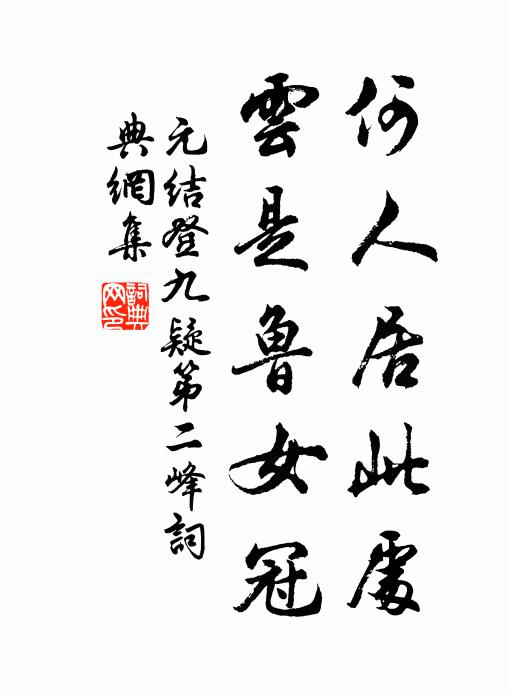 何人居此處
雲是魯女冠
元結登九疑第二峰詞
典網集
詞典
网印